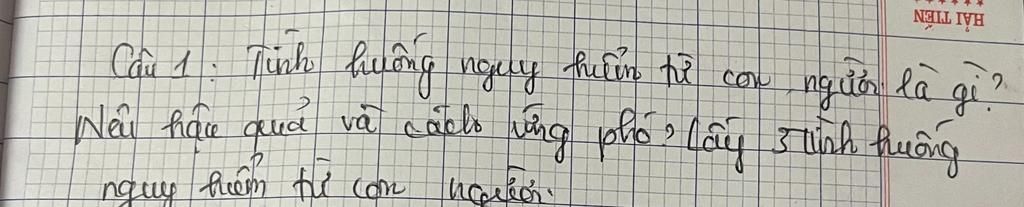 HẢI TIẾN
Câu 1: Tình huống nguy hiểm từ con người là gì?
Nêu hậu quả và cách ứng phó? Lấy 3 tình huống
nguy hiểm từ con người.